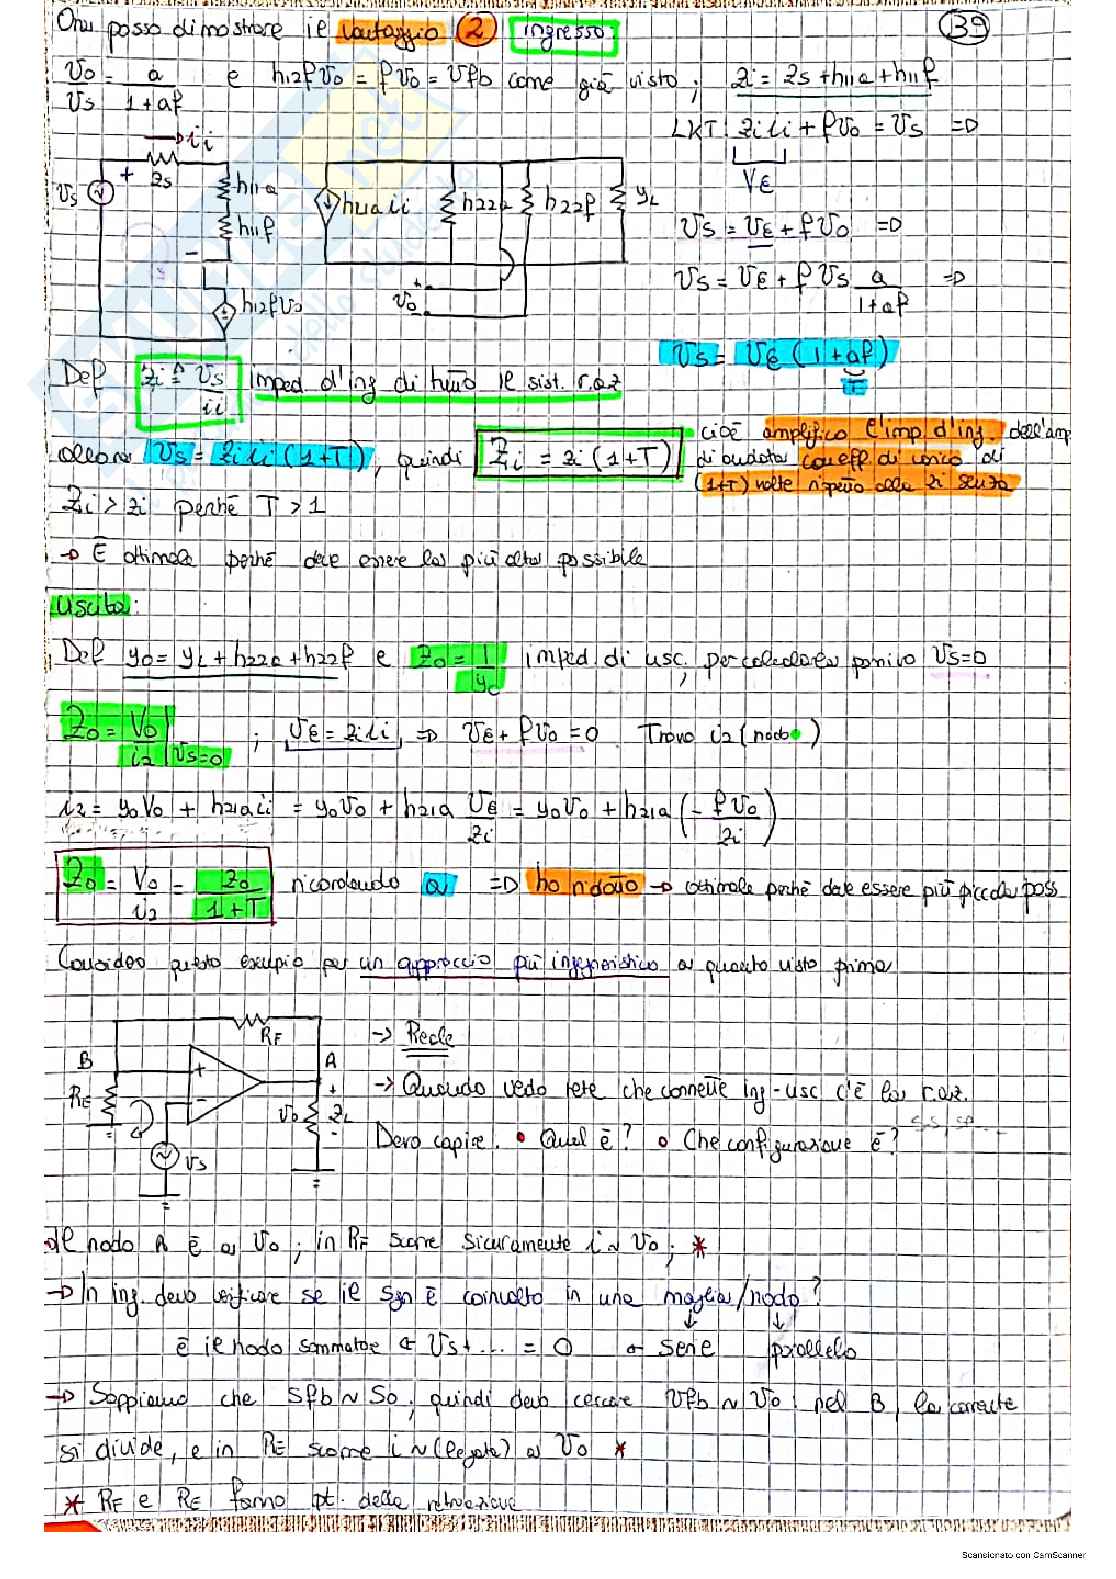 Ora posso dimostrare il vantaggio ② ingresso 39
Vo/Vs = a/(1+af) e h12f Vo = f Vo = Vfb come già visto; zi = zs + h11a + h11f
LKT: zi ii + f Vo = Vs =D
Vε
ii
+
zs
Vs
h11a
h11f
-
h12f Vo
h21a ii
h22a
h22f
yL
+
Vo
-
Vs = Vε + f Vo =D
Vs = Vε + f Vs a/(1+af) =D
Vs = Vε (1+af)
T
Def Zi ≜ Vs/ii imped d'ing di tutto il sist. r.a.z
allora Vs = zi ii (1+T), quindi Zi = zi (1+T) cioè amplifico l'imp. d'ing. dell'amp
di (1+T) volte rispetto alla zi senza
Zi > zi perché T > 1
→ È ottimale perché deve essere la più alta possibile
Uscita:
Def yo = yL + h22a + h22f e zo = 1/yo imped. di usc, per calcolarla pongo Vs=0
Zo = Vo/i2 |Vs=0 ; Vε = zi ii => Vε + f Vo = 0. Trovo i2 (nodo •)
i2 = yo Vo + h21a ii = yo Vo + h21a Vε/zi = yo Vo + h21a (- f Vo/zi)
Zo = Vo/i2 = zo/(1+T) ricordando a =D ho ridotto → ottimale perché deve essere più piccola poss
Considero questo esempio per un approccio più ingegneristico a quanto visto prima
RF
B
A
RE
+
-
Vs
+
Vo
-
ZL
→ Reale
→ Quando vedo rete che connette ing-usc c'è la r.a.z.
Devo capire. • Qual è? • Che configurazione è?
Al nodo A è a Vo; in RF scorre sicuramente i ~ Vo; *
→ In ing. devo verificare se il sgn è coinvolto in una maglia/nodo?
è il nodo sommatore Vs + ... = 0 serie parallelo
→ Sappiamo che Sfb ~ So, quindi devo cercare Vfb ~ Vo nel B, la corrente
si divide, e in RE scorre i ~ (legata) a Vo *
* RF e RE fanno pt. della retroazione
Scansionato con CamScanner